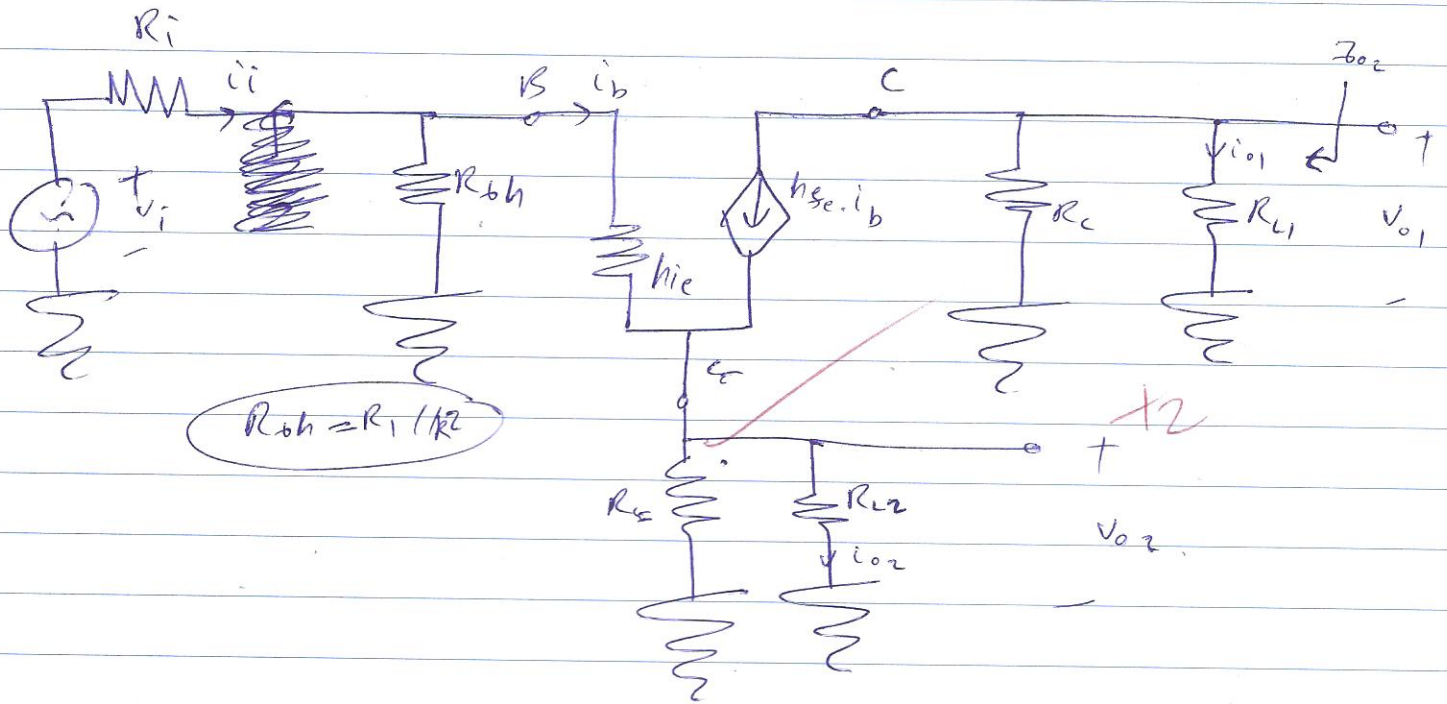 Ri
ii
B
ib
C
Zo2
+
vi
-
Rth
hie
hfe.ib
Rc
io1
RL1
+
Vo1
-
E
Rth = R1 // R2
+2
+
RE
RL2
io2
Vo2
-